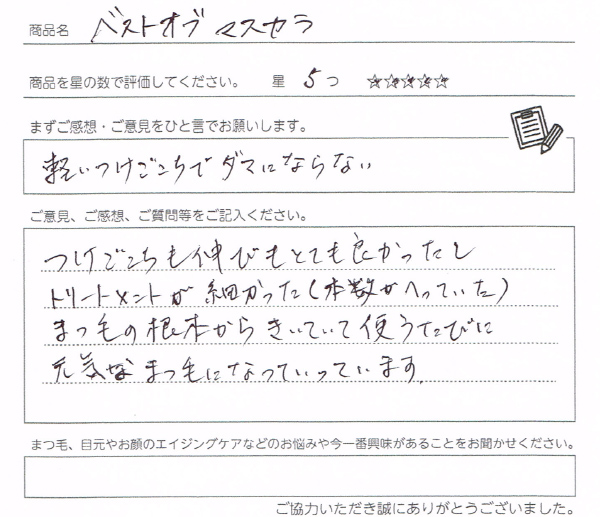 商品名 ベストオブ マスカラ
商品を星の数で評価してください。 星 5つ ☆☆☆☆☆
まずご感想・ご意見をひと言でお願いします。
軽いつけごこちでダマにならない
ご意見、ご感想、ご質問等をご記入ください。
つけごこちも伸びもとても良かったし
トリートメントが細かった(本数がへっていた)
まつ毛の根本からきいていて使うたびに
元気なまつ毛になっていっています。
まつ毛、目元やお顔のエイジングケアなどのお悩みや今一番興味があることをお聞かせください。
ご協力いただき誠にありがとうございました。